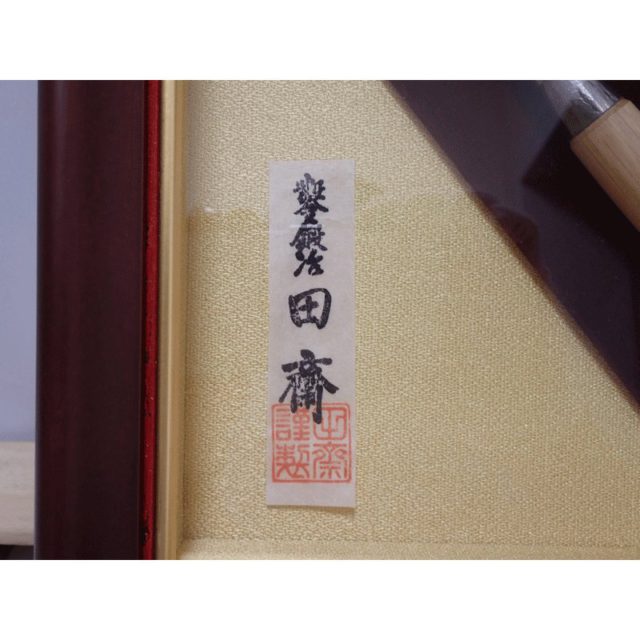 鑿鍛冶田齋
田齋
謹製